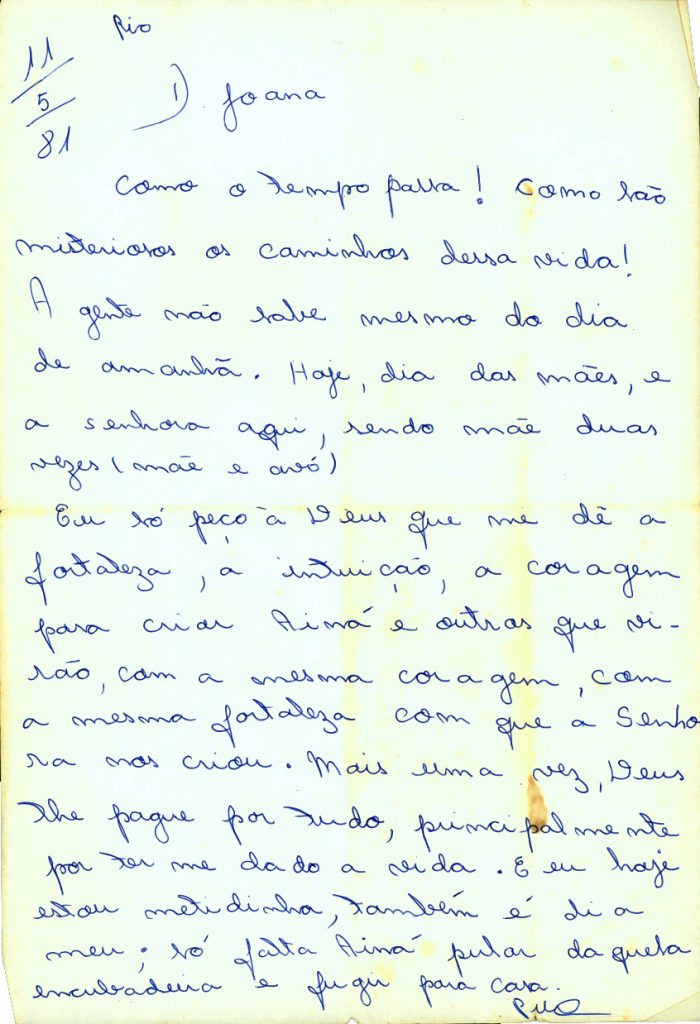 Rio
11
5
81
1) Joana
Como o tempo passa! Como são
misteriosos os caminhos dessa vida!
A gente não sabe mesmo do dia
de amanhã. Hoje, dia das mães, e
a senhora aqui, sendo mãe duas
vezes (mãe e avó)
Eu só peço à Deus que me dê a
fortaleza, a intuição, a coragem
para criar Ainá e outras que vi-
rão, com a mesma coragem, com
a mesma fortaleza com que a Senho
ra nos criou. Mais uma vez, Deus
lhe pague por tudo, principalmente
por ter me dado a vida. E eu hoje
estou metidinha, também é dia
meu; só falta Ainá pular daquela
encubadeira e fugir para casa.